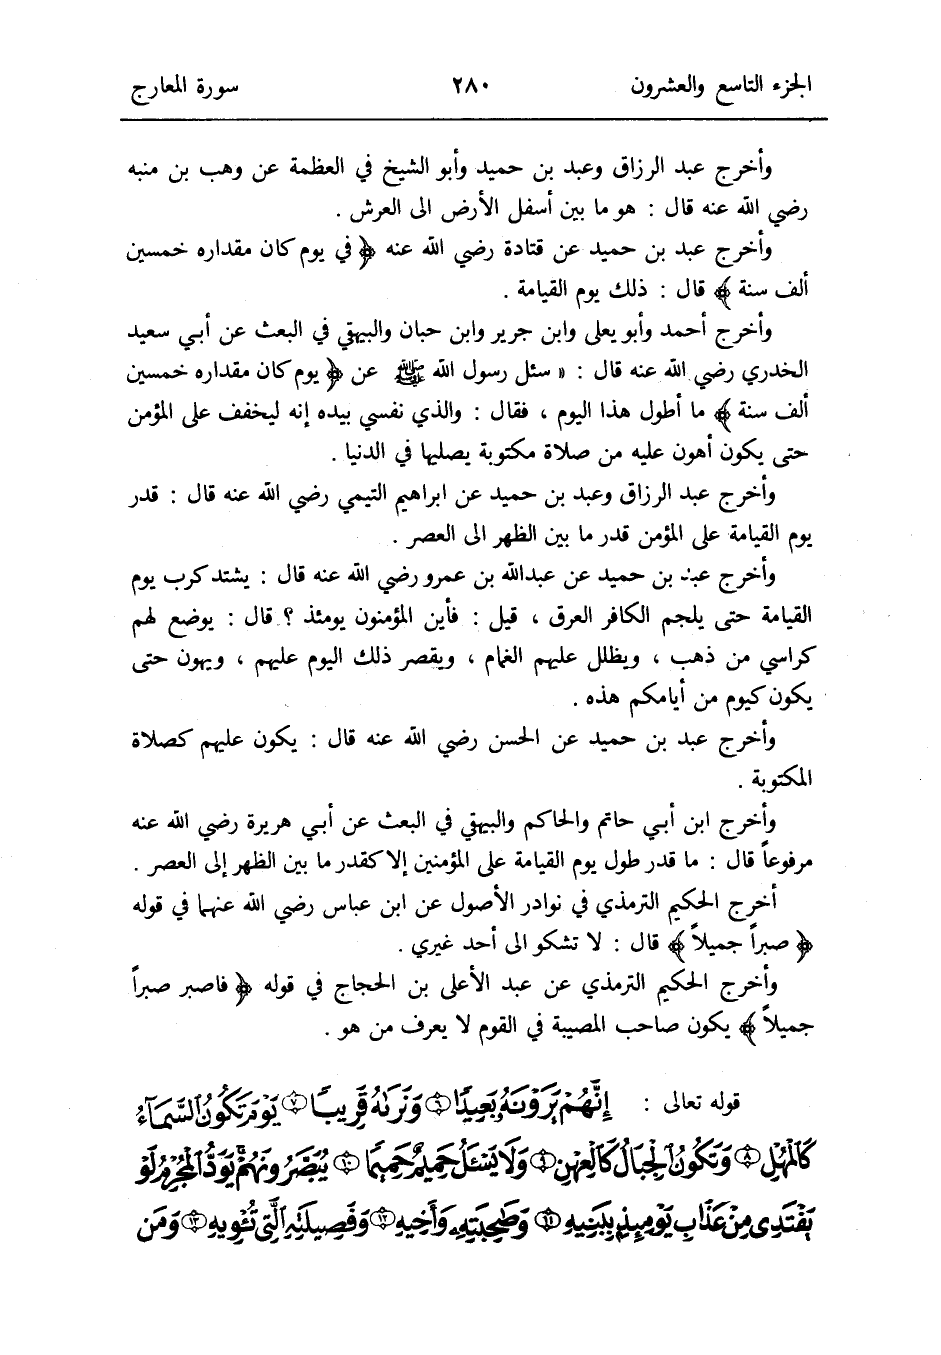 الجزء التاسع والعشرون ٢٨٠ سورة المعارج
وأخرج عبد الرزاق وعبد بن حميد وأبو الشيخ في العظمة عن وهب بن منبه
رضي الله عنه قال : هو ما بين أسفل الأرض الى العرش .
وأخرج عبد بن حميد عن قتادة رضي الله عنه ﴿ في يوم كان مقداره خمسين
ألف سنة ﴾ قال : ذلك يوم القيامة .
وأخرج أحمد وأبو يعلى وابن جرير وابن حبان والبيهقي في البعث عن أبي سعيد
الخدري رضي الله عنه قال : « سئل رسول الله ﷺ عن ﴿ يوم كان مقداره خمسين
ألف سنة ﴾ ما أطول هذا اليوم ، فقال : والذي نفسي بيده إنه ليخفف على المؤمن
حتى يكون أهون عليه من صلاة مكتوبة يصليها في الدنيا .
وأخرج عبد الرزاق وعبد بن حميد عن ابراهيم التيمي رضي الله عنه قال : قدر
يوم القيامة على المؤمن قدر ما بين الظهر الى العصر .
وأخرج عبد بن حميد عن عبدالله بن عمرو رضي الله عنه قال : يشتد كرب يوم
القيامة حتى يلجم الكافر العرق ، قيل : فأين المؤمنون يومئذ ؟ قال : يوضع لهم
كراسي من ذهب ، ويظلل عليهم الغمام ، ويقصر ذلك اليوم عليهم ، ويهون حتى
يكون كيوم من أيامكم هذه .
وأخرج عبد بن حميد عن الحسن رضي الله عنه قال : يكون عليهم كصلاة
المكتوبة .
وأخرج ابن أبي حاتم والحاكم والبيهقي في البعث عن أبي هريرة رضي الله عنه
مرفوعاً قال : ما قدر طول يوم القيامة على المؤمنين إلا كقدر ما بين الظهر إلى العصر .
أخرج الحكيم الترمذي في نوادر الأصول عن ابن عباس رضي الله عنهما في قوله
﴿ صبراً جميلاً ﴾ قال : لا تشكو الى أحد غيري .
وأخرج الحكيم الترمذي عن عبد الأعلى بن الحجاج في قوله ﴿ فاصبر صبراً
جميلاً ﴾ يكون صاحب المصيبة في القوم لا يعرف من هو .
قوله تعالى : إِنَّهُمْ يَرَوْنَهُ بَعِيدًا ٦ وَنَرَىٰهُ قَرِيبًا ٧ يَوْمَ تَكُونُ السَّمَآءُ
كَالْمُهْلِ ٨ وَتَكُونُ الْجِبَالُ كَالْعِهْنِ ٩ وَلَا يَسْئَلُ حَمِيمٌ حَمِيمًا ١٠ يُبَصَّرُونَهُمْ يَوَدُّ الْمُجْرِمُ لَوْ
يَفْتَدِى مِنْ عَذَابِ يَوْمِئِذٍ بِبَنِيهِ ١١ وَصَٰحِبَتِهِ وَأَخِيهِ ١٢ وَفَصِيلَتِهِ الَّتِى تُـْٔوِيهِ ١٣ وَمَن